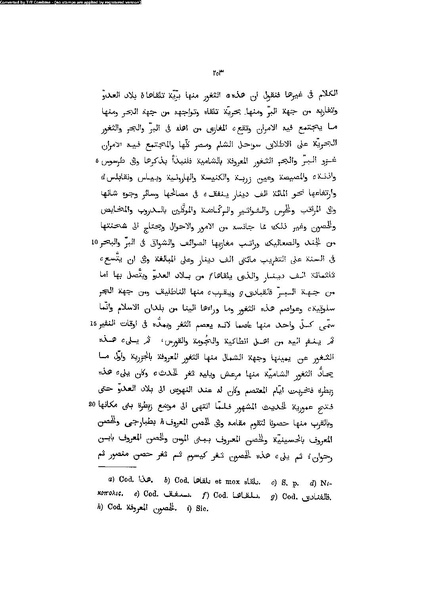 Converted by Tiff Combine - (no stamps are applied by registered version)
٢٥٣
الكلام فى غيرها فنقول ان هذه a الثغور منها برّيّة تلقاها b بلاد العدوّ
وتقاربه من جهة البرّ ومنها بحريّة تلقاه وتواجهه من جهة البحر ومنها
ما يجتمع فيه الامران وتقع المغازى من اهله فى البرّ والبحر والثغور
البحريّة على الاطلاق سواحل الشام ومصر كلّها والمجتمع فيه الامران
غزو البرّ والبحر الثغور المعروفة بالشامية فلنبدأ بذكرها وهى طرسوس 5
واذنة والمصيصة وعين زربة والكنيسة والهارونية وبياس ونقابلس
وارتفاعها نحو المائة الف دينار ينفق فى مصالحها وسائر وجوه شأنها
وهى المراقب والحرس والفواثير والركاضة والموكّلين بالدروب والمخايض
والحصون وغير ذلك ممّا جانسه من الامور والاحوال ويحتاج الى شحنتها
من الجند والصعاليك وراتب مغازيها الصوائف والشواتى فى البرّ والبحر 10
فى السنة على التقريب مائتى الف دينار وعلى المبالغة وهى ان يتّسع
ثلثمائة الف دينار والذى يلقاها من بلاد العدوّ ويتّصل بها اما
من جهة البرّ فالقباذق ويقرب منها الناطليق ومن جهة البحر
سلوقية وعواصم هذه الثغور وما وراءها الينا من بلدان الاسلام وانّما
سمّى كلّ واحد منها عاصما لانه يعصم الثغر ويمدّه فى اوقات النفير 15
ثم ينفر اليه من اهل انطاكية والجومة والقورس ثم يلى هذه
الثغور عن يمينها وجهة الشمال منها الثغور المعروفة بالجزرية واوّل ما
يحادّ الثغور الشاميّة منها مرعش ويليه ثغر الحدث وكان يلى هذه
زبطرة فخربت ايّام المعتصم وكان له عند النهوض الى بلاد العدوّ حتى
فتح عمورية الحديث المشهور فلمّا انتهى الى موضع زبطرة بنى مكانها 20
وبالقرب منها حصونا لتقوم مقامه وهى الحصن المعروف h بطبارجى والحصن
المعروف بالحسينيّة والحصن المعروف ببنى المومن والحصن المعروف بابن
رحوان ثم يلى هذه الحصون ثغر كيسوم ثم ثغر حصن منصور ثم
a) Cod. هذا. b) Cod. بلقاها et mox بلقاه. c) S. p. d) Ni-
korolis. e) Cod. f) Cod. g) Cod.
h) Cod. الحصون المعروفة. i) Sic.